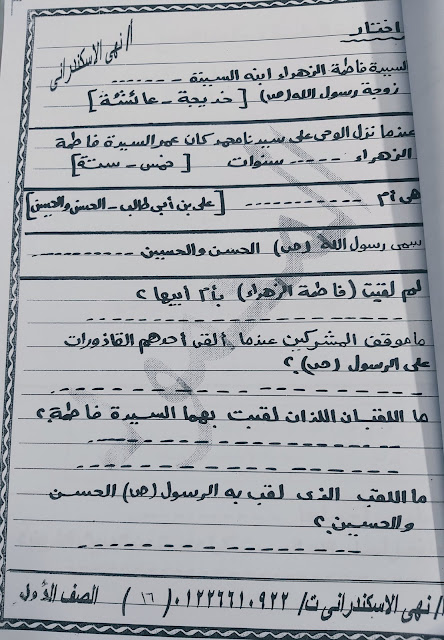 أ/ نهى الاسكندرانى
اختار
السيدة فاطمة الزهراء ابنه السيدة - - - - - - -
زوجة رسول الله (ص) [ خديجة - عائشة ]
عندما نزل الوحى على سيدنا محمد كان عمر السيدة فاطمة
الزهراء - - - - - سنوات [ خمس - ستة ]
هى أم - - - - - - - - - - [ على بن أبي طالب - الحسن والحسين ]
سمى رسول الله (ص) الحسن والحسين - - - - - - - - - -
لم لقبت (فاطمة الزهراء) بأم أبيها ؟
ما موقف المشركين عندما ألقى أحدهم القاذورات
على الرسول (ص) ؟
ما اللقبان اللذان لقبت بهما السيدة فاطمة ؟
ما اللقب الذى لقب به الرسول (ص) الحسن
والحسين ؟
أ/ نهى الاسكندرانى ت/ ٠١٢٢٦٦١٠٩٢٢ ( ١٦ ) الصف الأول